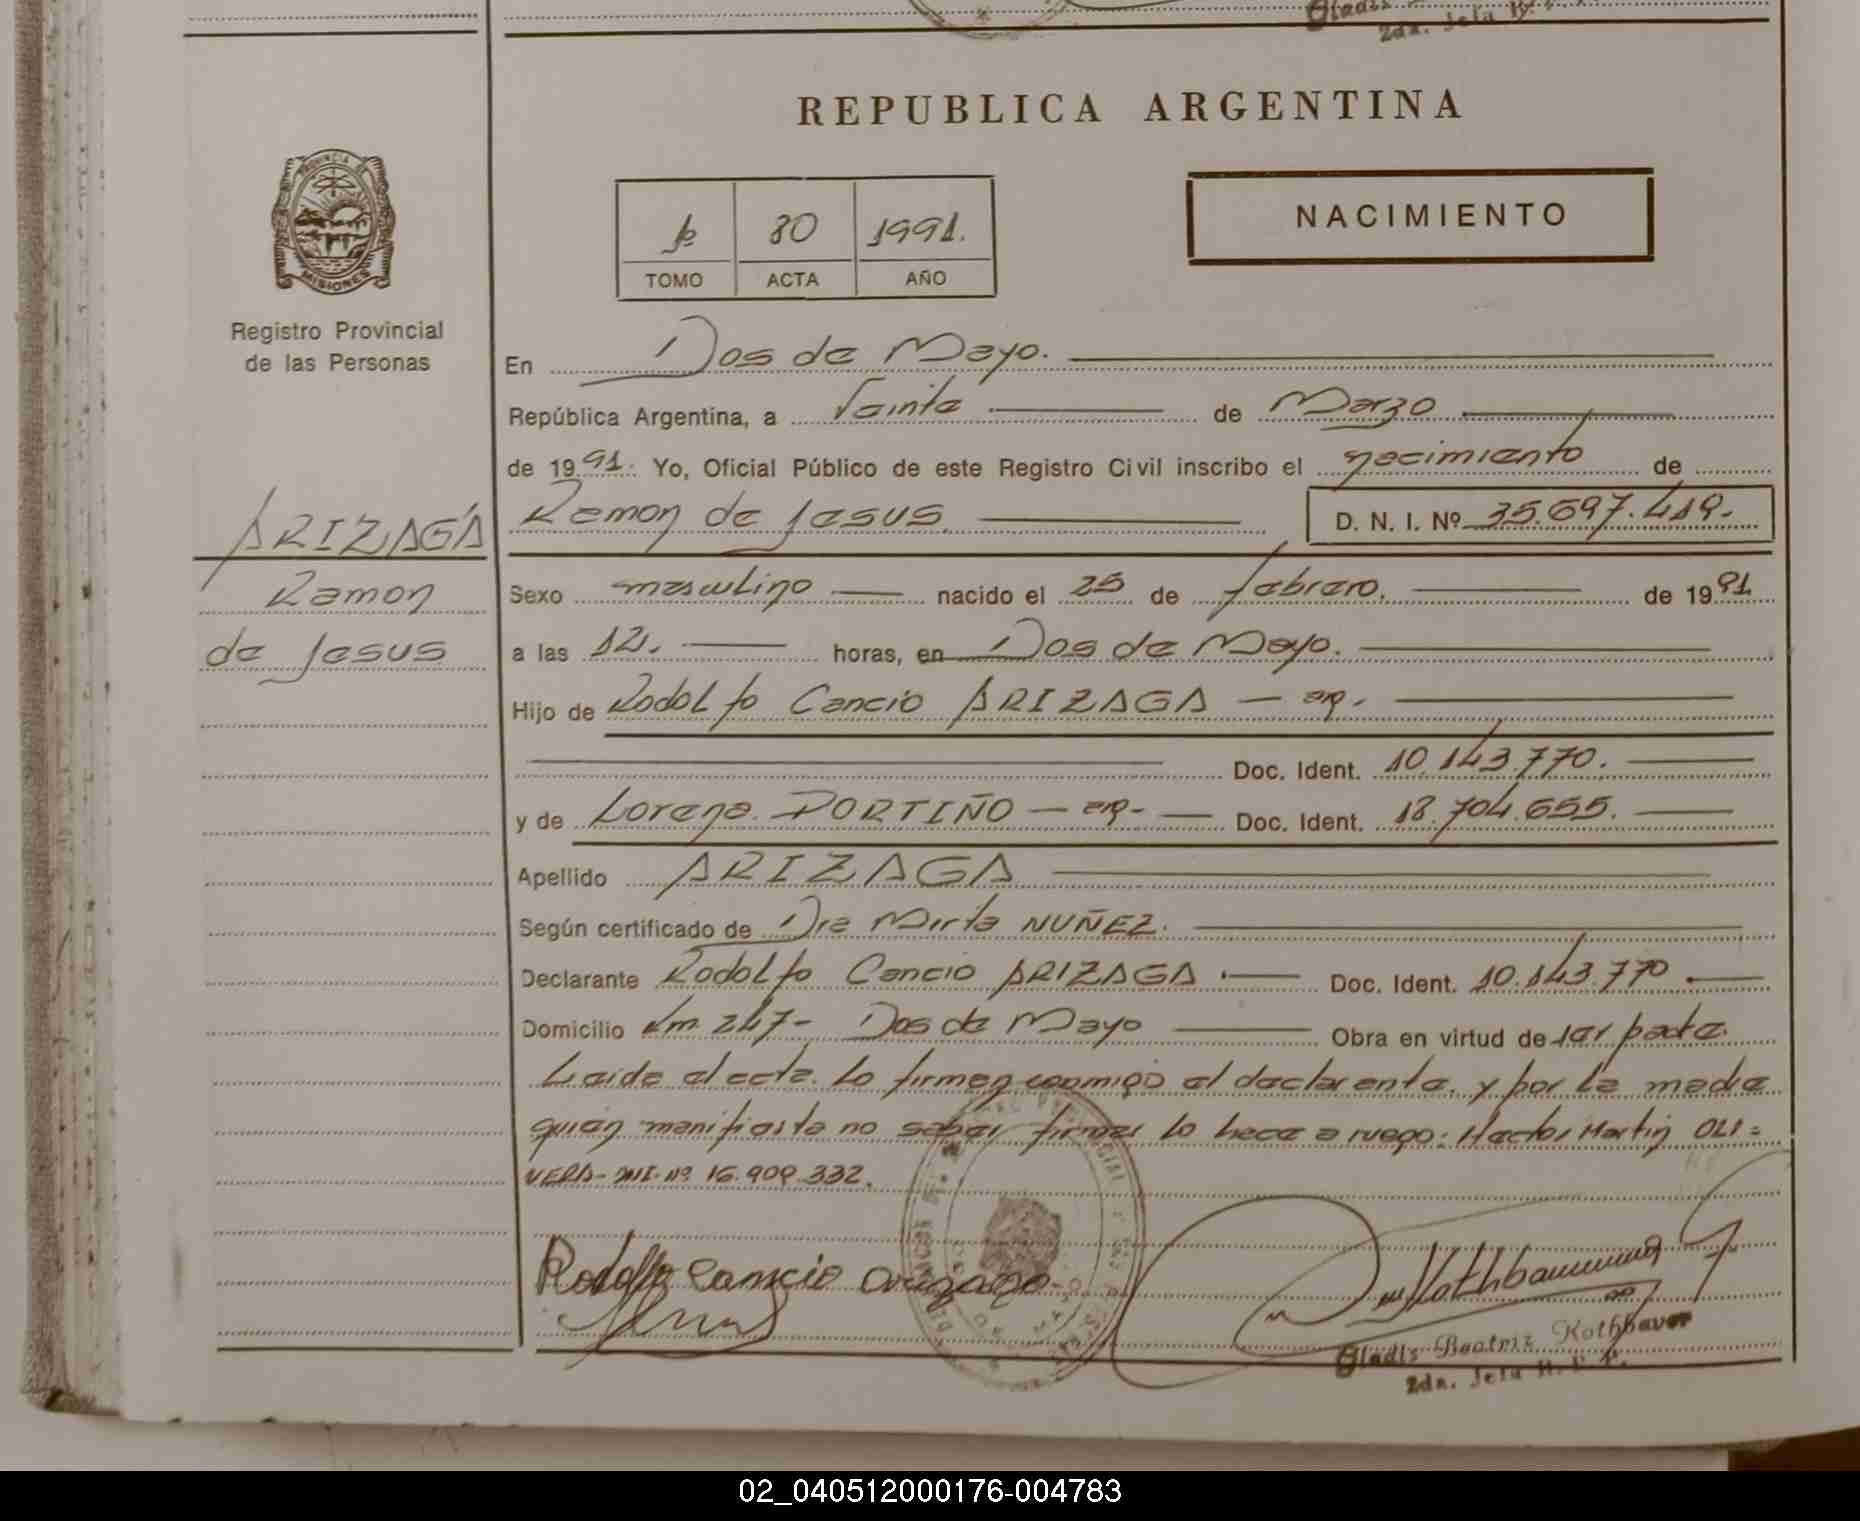 Gladis
2da. Jefa R.
REPUBLICA ARGENTINA
PROVINCIA DE
MISIONES
Registro Provincial
de las Personas
1º 80 1991.
TOMO ACTA AÑO
NACIMIENTO
En Dos de Mayo.
República Argentina, a Veinte de Marzo
de 1991. Yo, Oficial Público de este Registro Civil inscribo el nacimiento de
Ramon de Jesus D. N. I. Nº 35.697.419.
ARIZAGA
Ramon
de Jesus
Sexo masculino nacido el 25 de febrero. de 1991
a las 12. horas, en Dos de Mayo.
Hijo de Rodolfo Cancio ARIZAGA - ar.
Doc. Ident. 10.143.770.
y de Lorena PORTIÑO - ar- Doc. Ident. 18.704.655.
Apellido ARIZAGA
Según certificado de Dra Mirta NUÑEZ.
Declarante Rodolfo Cancio ARIZAGA. Doc. Ident. 10.143.770.
Domicilio Km. 247- Dos de Mayo Obra en virtud de ser padre.
Leida el acta. Lo firman conmigo el declarante, y por la madre
quien manifiesta no saber firmar lo hace a ruego: Hector Martin OLI=
VERA- MI. Nº 16.909.332.
Rodolfo Cancio Arizaga
Gladis Beatriz Rothbauer
2da. Jefa R. P. P.
02_040512000176-004783